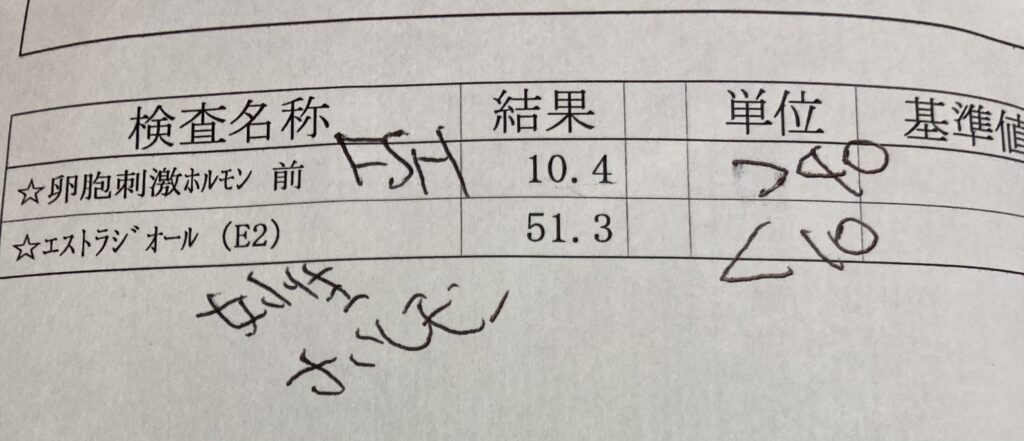 検査名称 結果 単位 基準値
☆卵胞刺激ホルモン 前 FSH 10.4 >40
☆エストラジオール (E2) 51.3 <10
女性
ホルモン